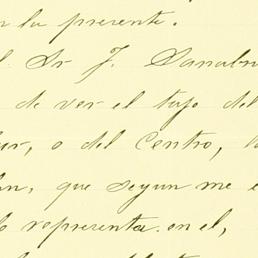 la presente.
Sr J. Sanabri
de ver el tujo del
ur, o del Centro, 
que segun me
representa en el,